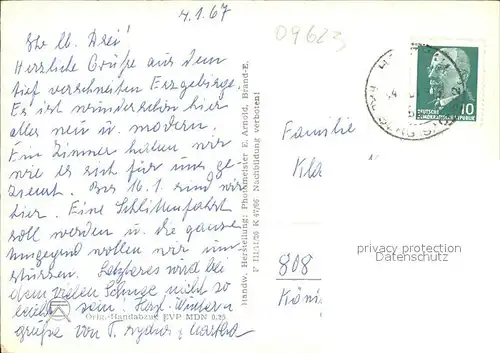 4.1.67
09623
Ihr lb. Drei!
Herzliche Grüße aus dem
tief verschneiten Erzgebirge.
Es ist wunderschön hier
alles neu u. modern.
Ein Zimmer haben wir
wie es sich für uns ge-
ziemt. Bis 16.1. sind wir
hier. Eine Schlittenfahrt
soll werden u. die ganze
Umgegend wollen wir un-
stürzen. Letzteres wird bei
dem vielen Schnee nicht so
leicht sein. Herzl. Winter-
grüße von T. u. Martha
Orig.-Handabzug EVP MDN 0,25
Handw. Herstellung: Photomeister E. Arnold, Brand-E.
Nachbildung verboten!
DEUTSCHE
DEMOKRATISCHE REPUBLIK
10
Familie
Kla
808
Köni
privacy protection
Datenschutz